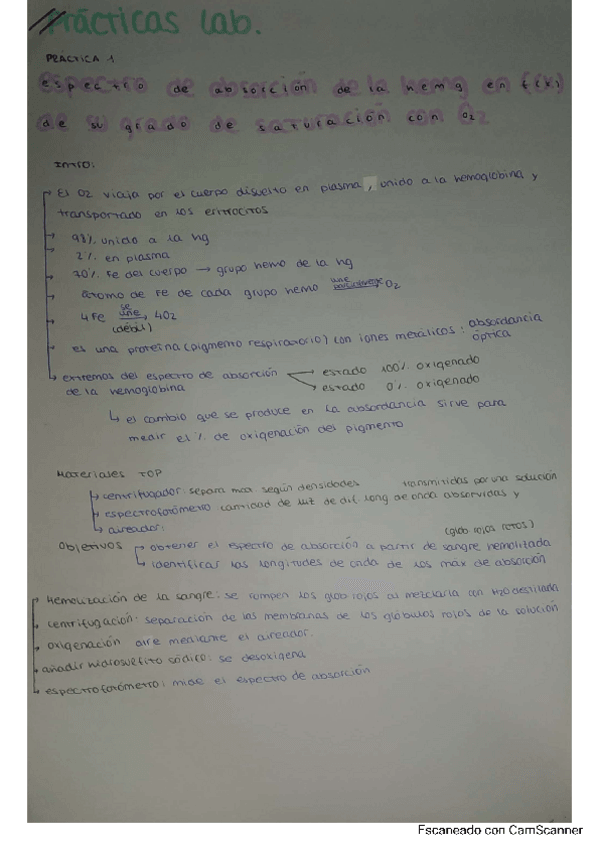 //Prácticas Lab.
PRÁCTICA 1
espectro de absorción de la hemg en f(x)
de su grado de saturación con O2
Intro:
El O2 viaja por el cuerpo disuelto en plasma, unido a la hemoglobina y
transportado en los eritrocitos
98% unido a la hg
2% en plasma
70% Fe del cuerpo → grupo hemo de la hg
átomo de Fe de cada grupo hemo une O2
4Fe se une 4O2
(débil)
es una proteína (pigmento respiratorio) con iones metálicos: absordancia
óptica
extremos del espectro de absorción
de la hemoglobina
estado 100% oxigenado
estado 0% oxigenado
↳ el cambio que se produce en la absordancia sirve para
medir el % de oxigenación del pigmento
Materiales TOP
centrifugador: separa mat según densidades
espectrofotómetro cantidad de luz de dif. long de onda absorvidas y transmitidas por una solución
aireador:
Objetivos
obtener el espectro de absorción a partir de sangre hemolizada (glob rojos rotos)
identificar las longitudes de onda de los max de absorción
Hemolización de la sangre: se rompen los glob rojos al mezclarla con H2O destilada
centrifugación: separación de las membranas de los glóbulos rojos de la solución
oxigenación aire mediante el aireador.
añadir hidrosulfito sódico: se desoxigena
espectrofotómetro: mide el espectro de absorción
Escaneado con CamScanner